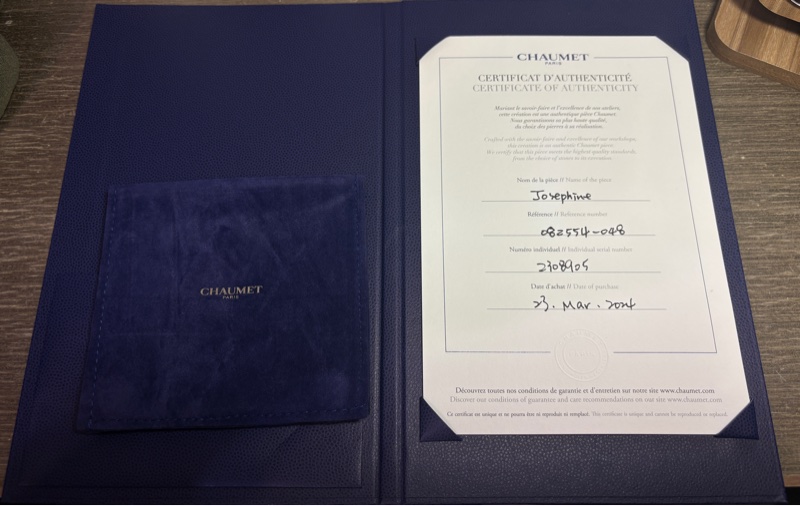 CHAUMET
PARIS
CHAUMET
PARIS
CERTIFICAT D'AUTHENTICITÉ
CERTIFICATE OF AUTHENTICITY
Mariant le savoir-faire et l'excellence de nos ateliers,
cette création est une authentique pièce Chaumet.
Nous garantissons sa plus haute qualité,
du choix des pierres à sa réalisation.
Crafted with the savoir-faire and excellence of our workshops,
this creation is an authentic Chaumet piece.
We certify that this piece meets the highest quality standards,
from the choice of stones to its execution.
Nom de la pièce // Name of the piece
Josephine
Référence // Reference number
082554-048
Numéro individuel // Individual serial number
2308905
Date d'achat // Date of purchase
23. Mar. 2024
Découvrez toutes nos conditions de garantie et d'entretien sur notre site www.chaumet.com
Discover our conditions of guarantee and care recommendations on our site www.chaumet.com
Ce certificat est unique et ne pourra être ni reproduit ni remplacé. This certificate is unique and cannot be reproduced or replaced.